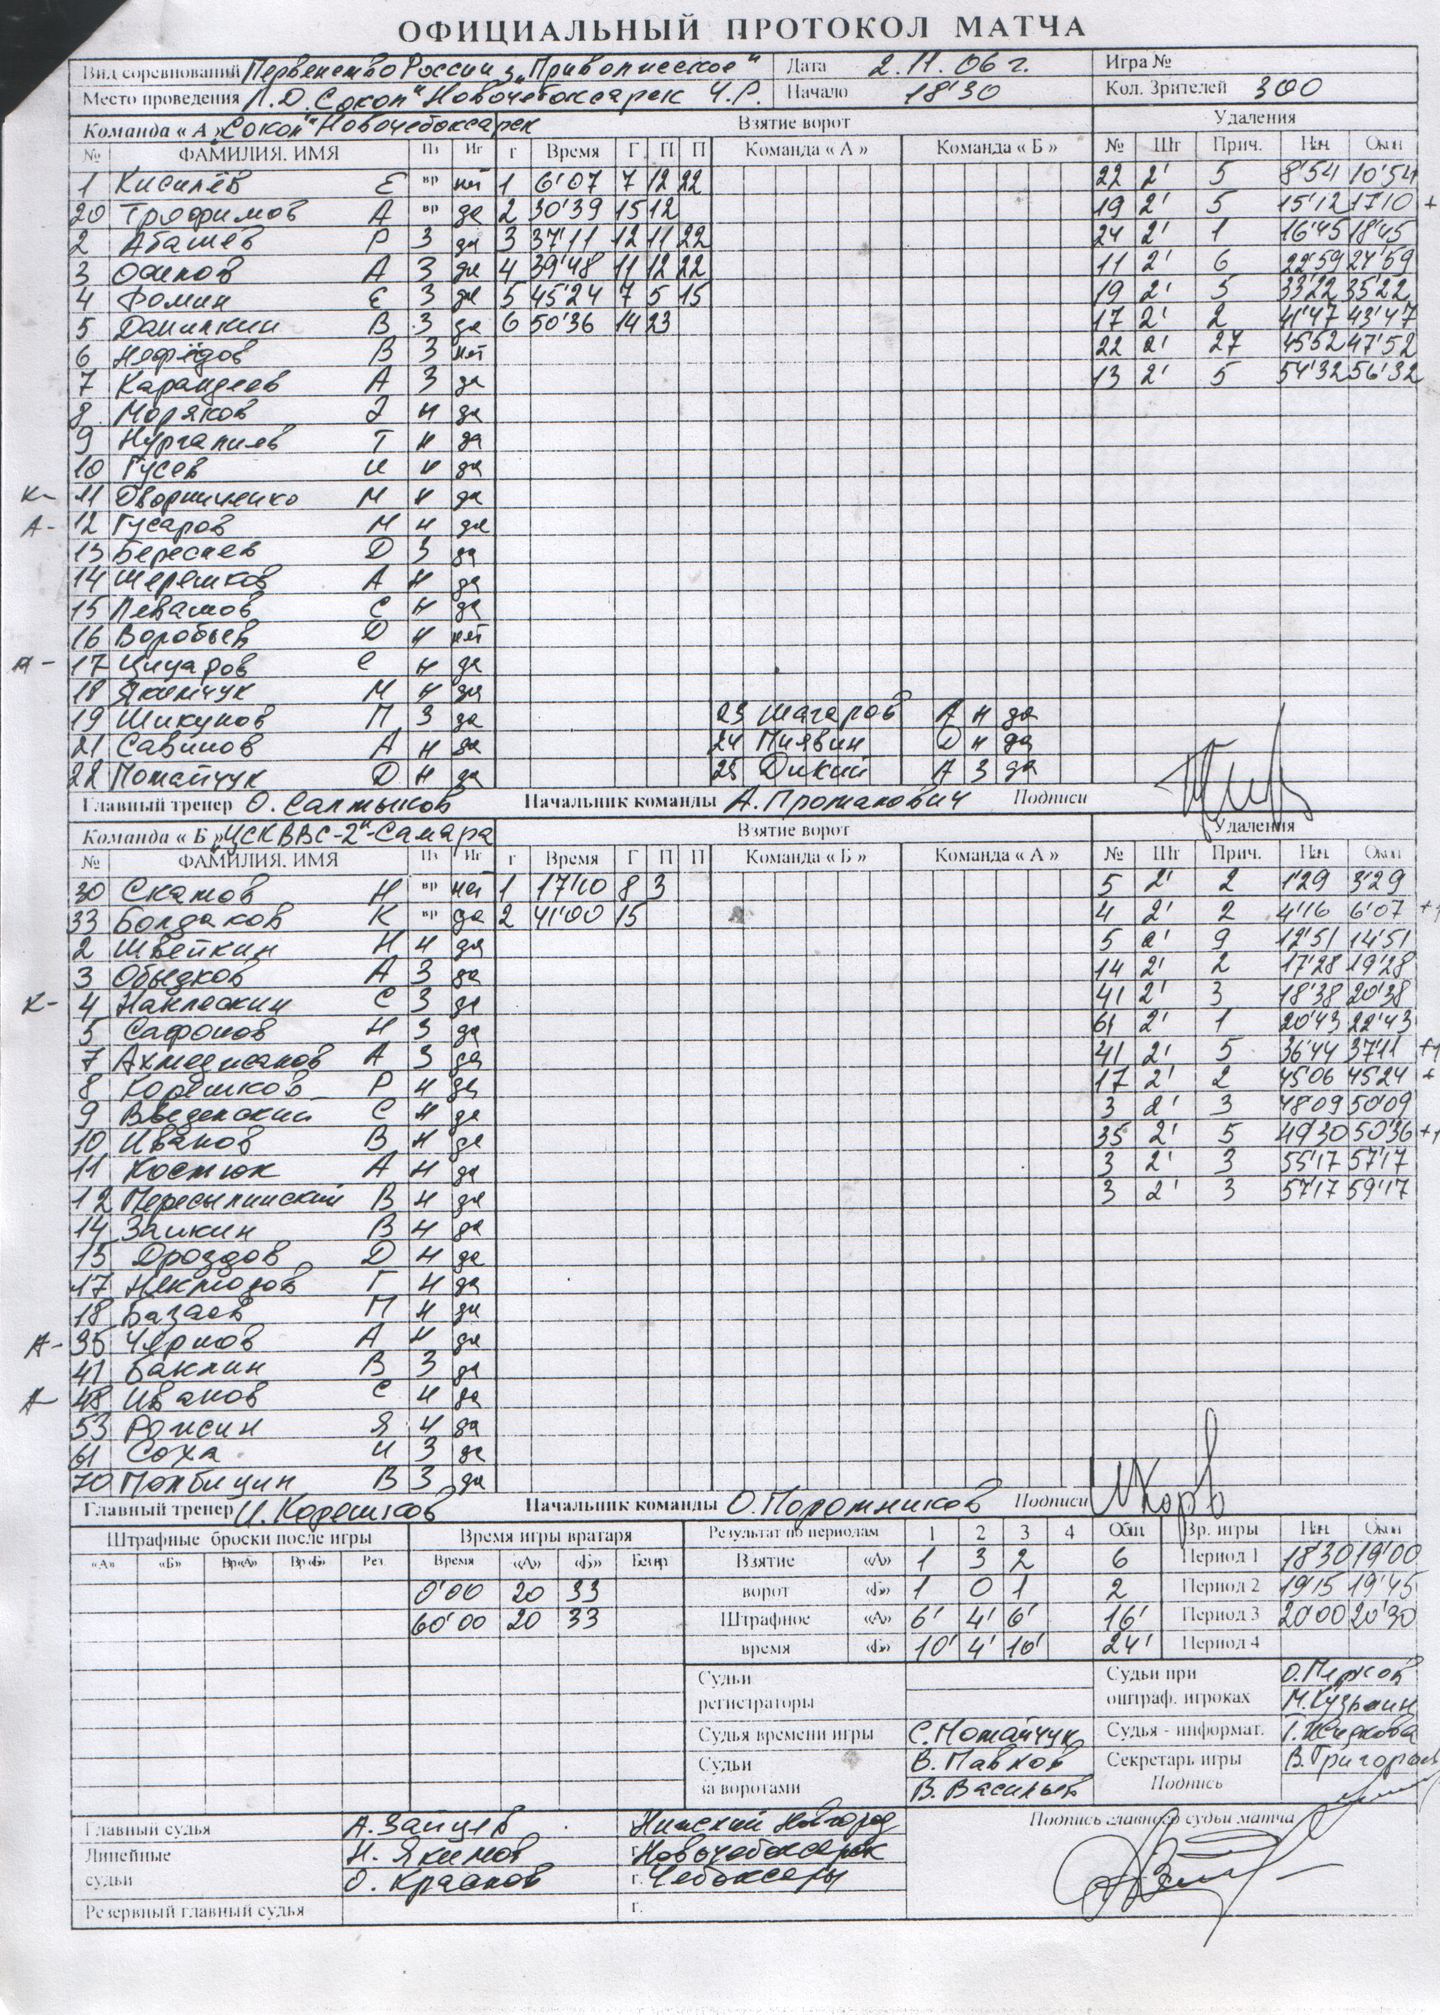 ОФИЦИАЛЬНЫЙ ПРОТОКОЛ МАТЧА
Вид соревнований Первенство России з. "Приволжское" Дата 2.11.06 г. Игра №
Место проведения Л.Д. Сокол" Новочебоксарск Ч.Р. Начало 18'30 Кол. Зрителей 300
Команда « А » Сокол" Новочебоксарск Взятие ворот Удаления
№ ФАМИЛИЯ. ИМЯ Пз Иг г Время Г П П Команда « А » Команда « Б » № Шг Прич. Нач. Окон
1 Киселёв Е вр нет 1 6'07 7 12 22 22 2' 5 8'54 10'54
20 Трофимов А вр да 2 30'39 15 12 19 2' 5 15'12 17'10 +
2 Абашев Р З да 3 37'11 12 11 22 24 2' 1 16'45 18'45
3 Осипов А З да 4 39'48 11 12 22 11 2' 6 22'59 24'59
4 Фомин Е З да 5 45'24 7 5 15 19 2' 5 33'22 35'22
5 Данилкин В З да 6 50'36 14 23 17 2' 2 41'47 43'47
6 Нефёдов В З нет 22 2' 27 45'52 47'52
7 Карандеев А З да 13 2' 5 54'32 56'32
8 Моряков Э н да
9 Нургалиев Т н да
10 Гусев И н да
к- 11 Дворниченко М н да
А- 12 Гусаров М н да
13 Береснев Д З да
14 Терешков А н да
15 Левашов С н да
16 Воробьев Д н нет
А- 17 Цицаров С н да
18 Якимчук М н да
19 Шикунов П З да 23 Шагаров А н да
21 Савинов А н да 24 Пиявин Д н да
22 Потайчук Д н да 25 Дикий А З да
Главный тренер О. Салтыков Начальник команды А. Протапович Подписи
Команда « Б » "ЦСК ВВС-2"-Самара Взятие ворот Удаления
№ ФАМИЛИЯ. ИМЯ Пз Иг г Время Г П П Команда « Б » Команда « А » № Шг Прич. Нач. Окон
30 Скатов Н вр нет 1 17'10 8 3 5 2' 2 1'29 3'29
33 Болдаков К вр да 2 41'00 15 4 2' 2 4'16 6'07 +1
2 Швейкин Н н да 5 2' 9 12'51 14'51
3 Обыдков А З да 14 2' 2 17'28 19'28
к- 4 Наклескин С З да 41 2' 3 18'38 20'38
5 Сафонов Н З да 61 2' 1 20'43 22'43
7 Ахмеджанов А З да 41 2' 5 36'44 37'11 +1
8 Корешков Р н да 17 2' 2 45'06 45'24 +
9 Введенский С н да 3 2' 3 48'09 50'09
10 Иванов В н да 35 2' 5 49'30 50'36 +1
11 Костюк А н да 3 2' 3 55'17 57'17
12 Пересыпинский В н да 3 2' 3 57'17 59'17
14 Заикин В н да
15 Дроздов Д н да
17 Г н да
18 Базаев П н да
А- 35 Чернов А н да
41 Баклин В З да
А- 48 Иванов С н да
53 Ронсин Я н да
61 Соха И З да
70 Полбицин В З да
Главный тренер И. Корешков Начальник команды О. Поротников Подписи
Штрафные броски после игры Время игры вратаря Результат по периодам 1 2 3 4 Общ. Вр. игры Нач. Окон
«А» «Б» Вр«А» Вр«Б» Рез. Время «А» «Б» Безвр Взятие «А» 1 3 2 6 Период 1 18'30 19'00
0'00 20 33 ворот «Б» 1 0 1 2 Период 2 19'15 19'45
60'00 20 33 Штрафное «А» 6' 4' 6' 16' Период 3 20'00 20'30
время «Б» 10' 4' 10' 24' Период 4
Судьи регистраторы Судьи при оштраф. игроках О. Перков
М. Кузьмин
Судья времени игры С. Потайчук Судья - информат. Г. Жидкова
Судьи В. Павлов Секретарь игры В. Григорьев
за воротами В. Васильев Подпись
Главный судья А. Зайцев Нижний Новгород Подпись главного судьи матча
Линейные Н. Якимов г. Новочебоксарск
судьи О. Краснов г. Чебоксары
Резервный главный судья г.